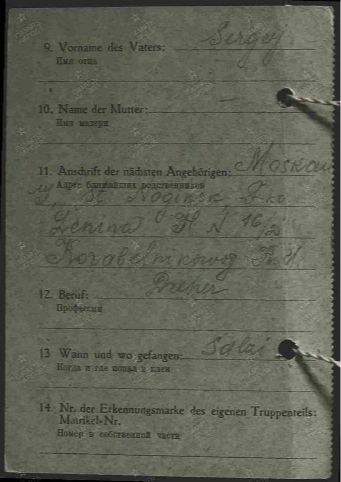 9. Vorname des Vaters: Sergej
Имя отца
10. Name der Mutter: —
Имя матери
11. Anschrift der nächsten Angehörigen: Moskau
Адрес ближайших родственников
st. Noginsk,
Lenina H N 16/2
12. Beruf: Dreher
Профессия
13 Wann und wo gefangen:
Когда и где попал в плен
14. Nr. der Erkennungsmarke des eigenen Truppenteils:
Matrikel-Nr.
Номер в собственной части